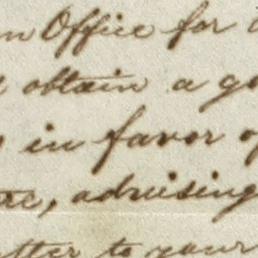 n Office for
obtain a go
in favor of
re, advising
tter to your